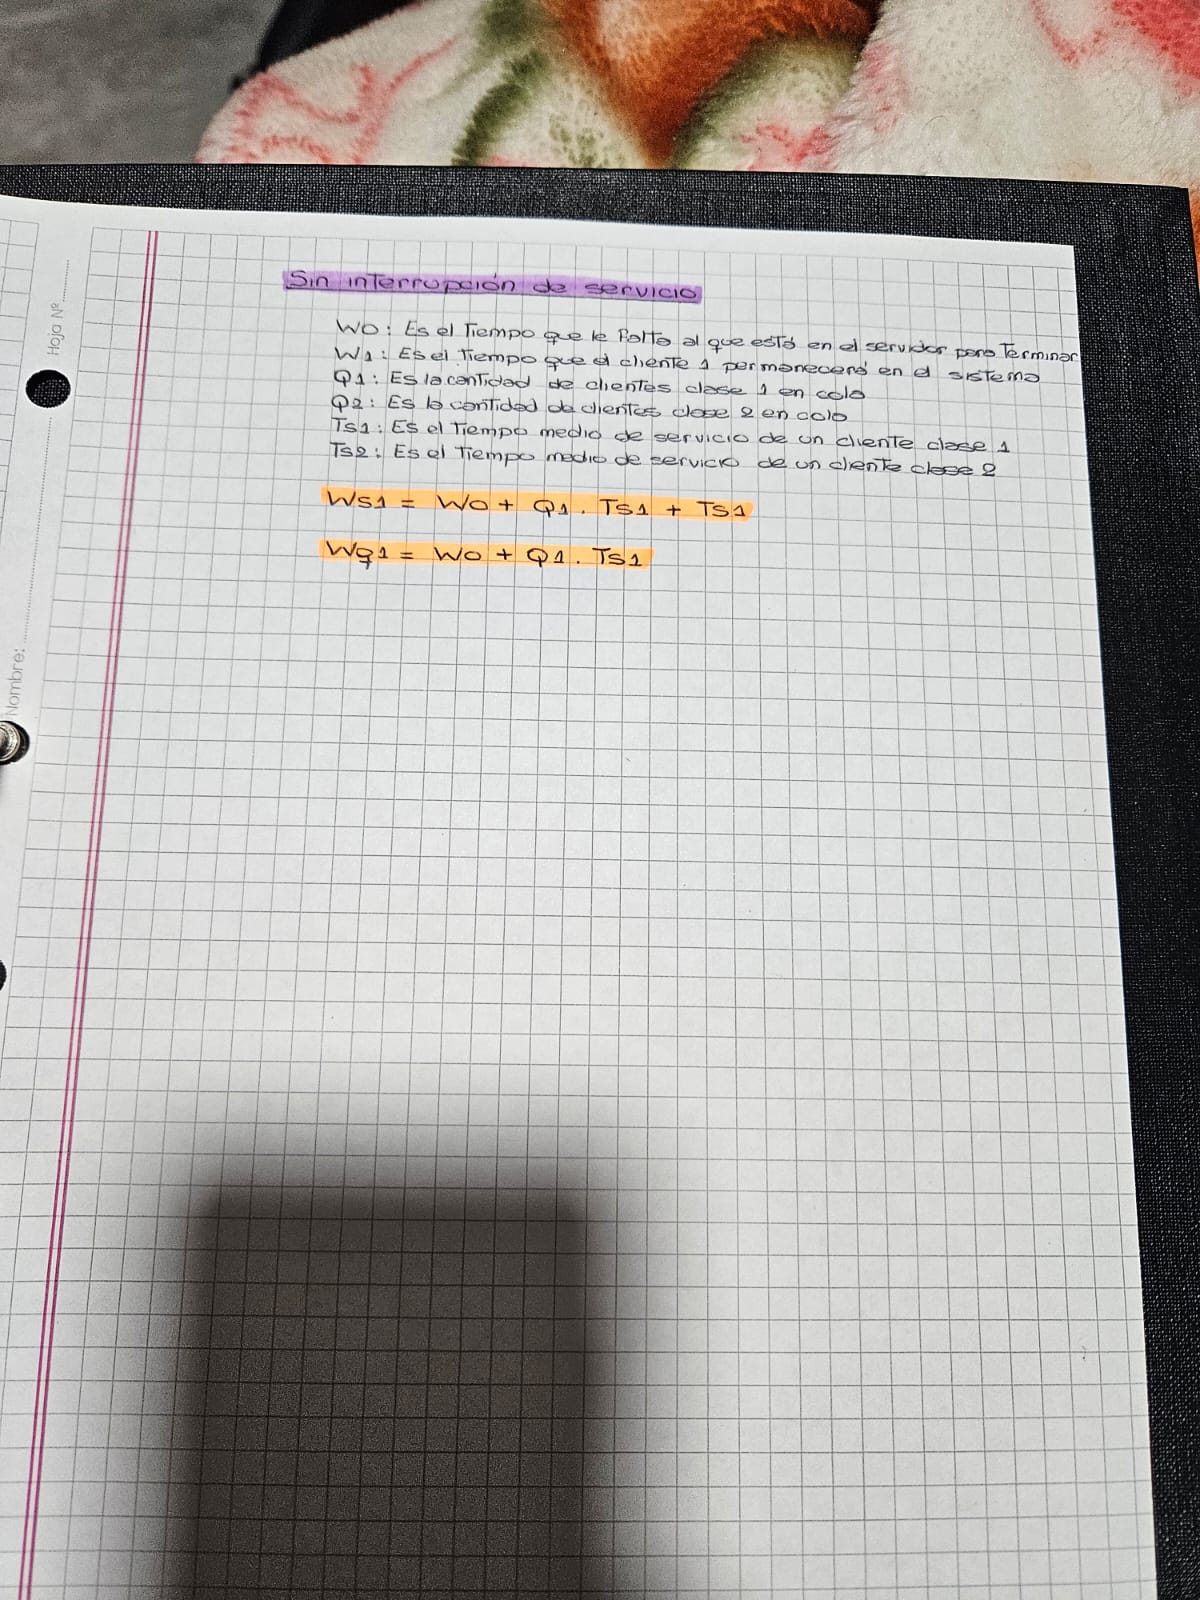 Sin interrupción de servicio
W0: Es el Tiempo que le falta al que está en el servidor para Terminar
W1: Es el Tiempo que el cliente 1 permanecerá en el sistema
Q1: Es la cantidad de clientes clase 1 en cola
Q2: Es la cantidad de clientes clase 2 en cola
Ts1: Es el Tiempo medio de servicio de un cliente clase 1
Ts2: Es el Tiempo medio de servicio de un cliente clase 2
Ws1 = W0 + Q1 . Ts1 + Ts1
Wq1 = W0 + Q1 . Ts1
Hoja Nº
Nombre: